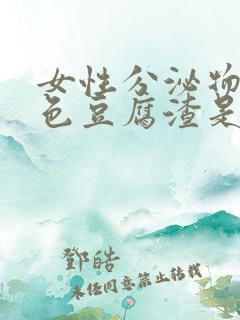 女性分泌物
色豆腐渣是
鄧皓
未经同意禁止转载